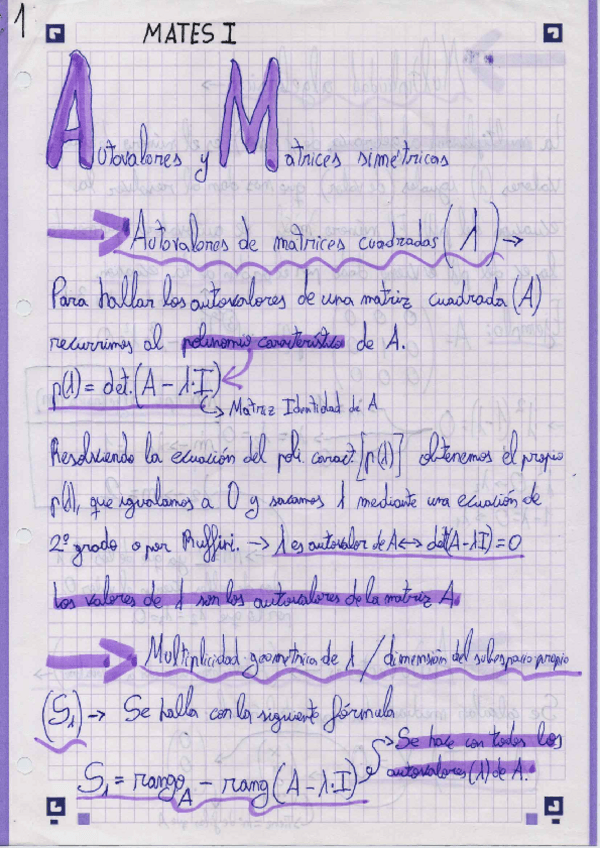 1
MATES I
Autovalores y Matrices simétricas
Autovalores de matrices cuadradas (λ) →
Para hallar los autovalores de una matriz cuadrada (A)
recurrimos al polinomio característico de A.
p(λ) = det.(A - λ·I)
↳ Matriz Identidad de A
Resolviendo la ecuación del poli. caract. [p(λ)] obtenemos el propio
p(λ), que igualamos a 0 y sacamos λ mediante una ecuación de
2º grado o por Ruffini. → λ es autovalor de A ↔ det(A-λI)=0
Los valores de λ son los autovalores de la matriz A.
Multiplicidad geométrica de λ / dimensión del subespacio propio
(Sλ) → Se halla con la siguiente fórmula
Sλ = rango A - rang(A - λ·I)
→ Se hace con todos los
autovalores (λ) de A.